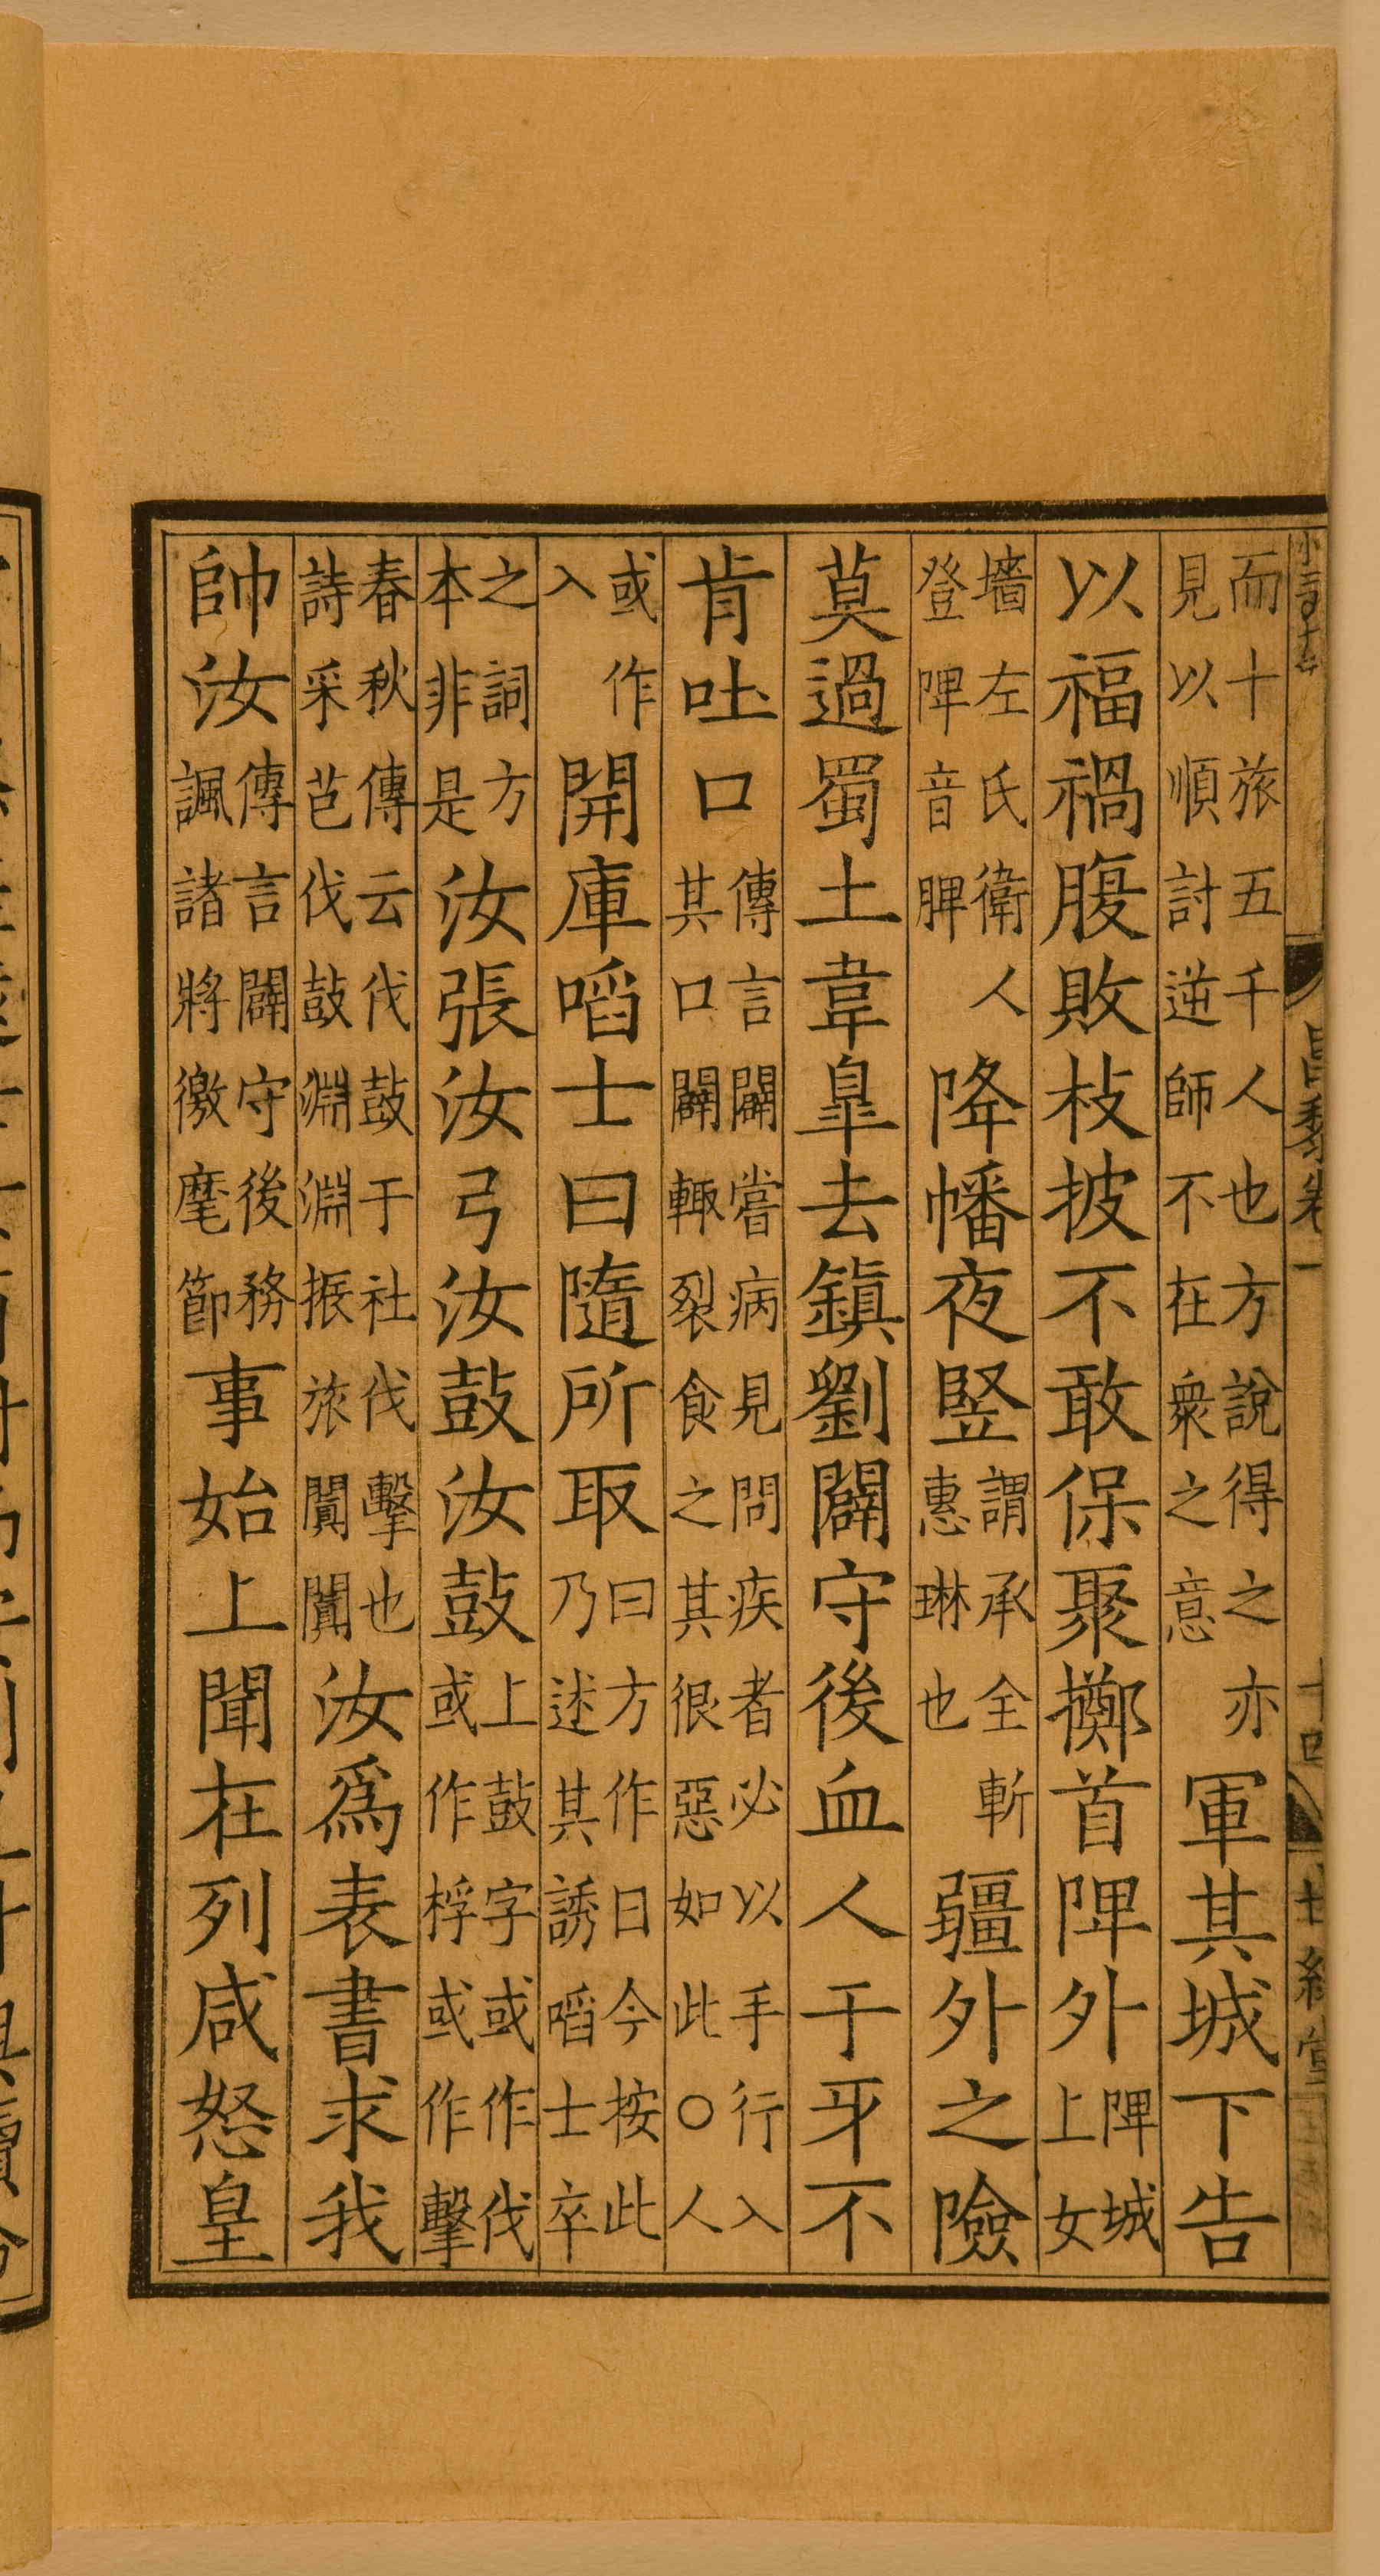 而十旅五千人也方說得之亦
見以順討逆師不在衆之意
軍其城下告
以福禍腹敗枝披不敢保聚擲首陴外
陴城
上女
墻左氏衛人
登陴音脾
降幡夜竪
謂承全斬
惠琳也
疆外之險
莫過蜀土韋臯去鎭劉闢守後血人于牙不
肯吐口
傳言闢嘗病見問疾者必以手行入
其口闢輙裂食之其很惡如此○人
或作
入
開庫啗士曰隨所取
曰方作日今按此
乃述其誘啗士卒
之詞方
本非是
汝張汝弓汝鼓汝鼓
上鼓字或作伐
或作桴或作擊
春秋傳云伐鼓于社伐擊也
詩采芑伐鼓淵淵振旅闐闐
汝爲表書求我
帥汝
傳言闢守後務
諷諸將徼麾節
事始上聞在列咸怒皇
昌黎卷一
十四